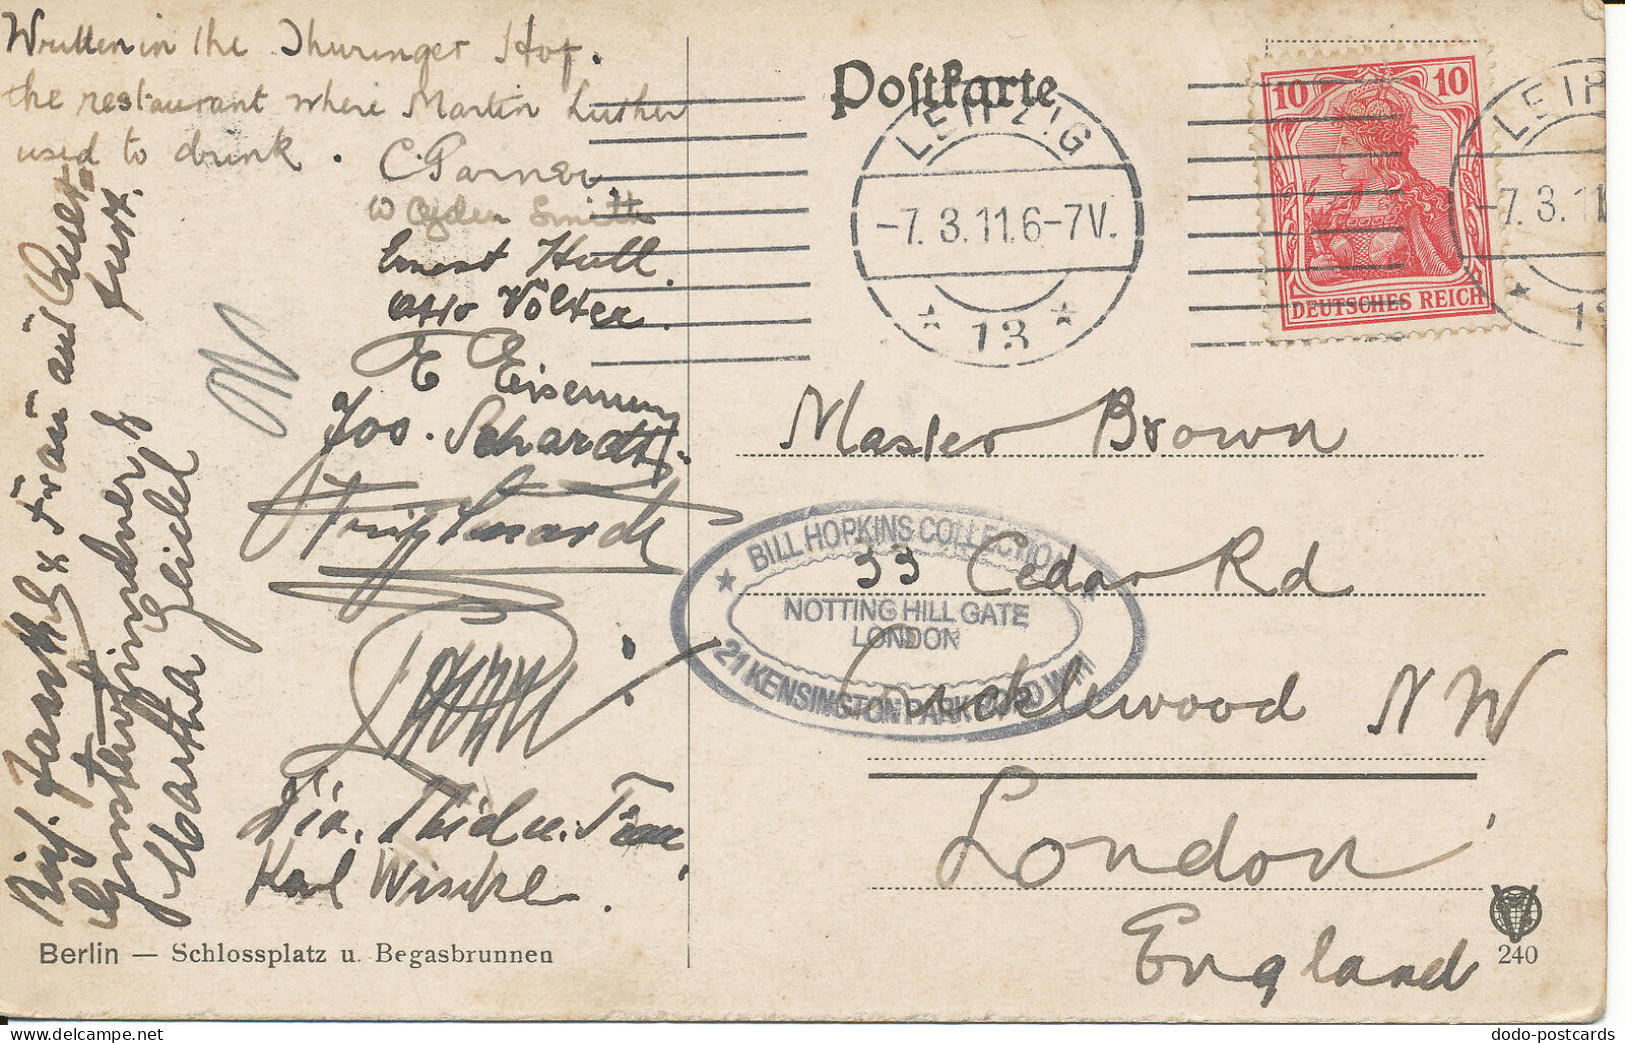 Written in the Thuringer Hof.
the restaurant where Martin Luther
used to drink.
C. Garner
W Ogden Smith
Ernest Hull.
Otto Völter.
E Eisemann
Jos. Schardt.
Fritz
Dir. Thiel u. Frau,
Karl
Frau aus
furt.
Martha Zeidel
Berlin — Schlossplatz u. Begasbrunnen
Postkarte
LEIPZIG
-7.3.11.6-7V.
* 13 *
10 10
DEUTSCHES REICH
LEIP
-7.3.11
* 13
Master Brown
33 Cedar Rd
Cricklewood NW
London
England
★ BILL HOPKINS COLLECTION ★
NOTTING HILL GATE
LONDON
21 KENSINGTON PARK ROAD W11
240
dodo-postcards